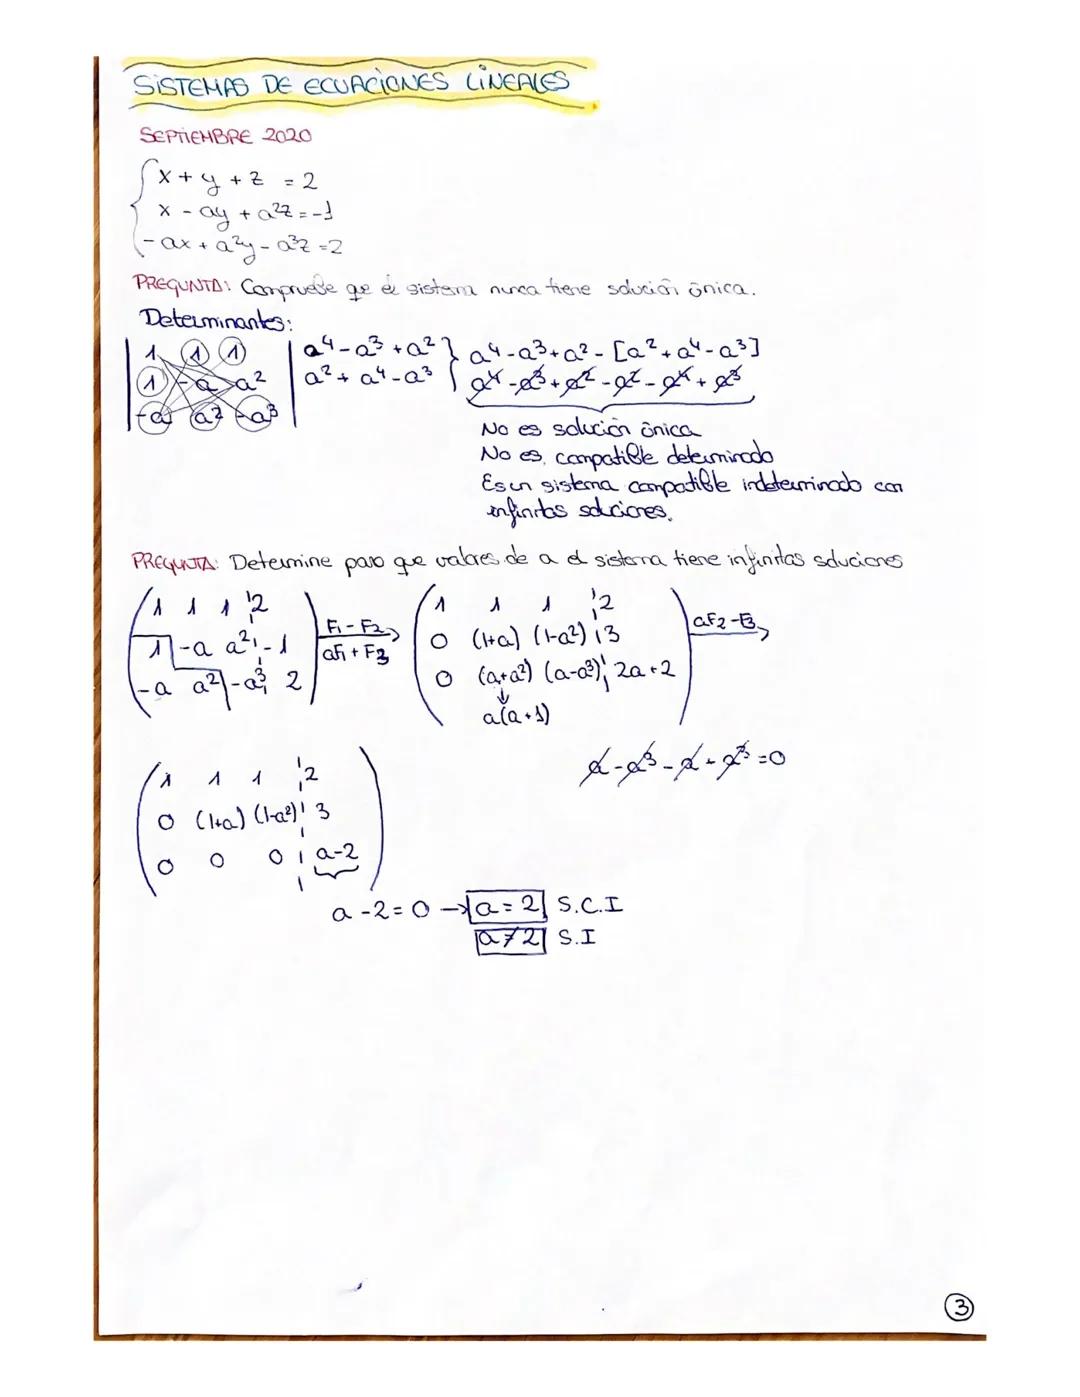 SISTEMAS DE ECUACIONES LINEALES
SEPTIEMBRE 2020
x + y + z = 2
x - ay + a²z = -1
-ax + a²y - a³z = 2
PREGUNTA: Compruebe que el sistema nunca tiene solución única.
Determinantes:
1 1 1 a⁴-a³+a² } a⁴-a³+a²-[a²+a⁴-a³]
1 -a a² a²+a⁴-a³ a⁴-a³+a²-a²-a⁴+a³
-a a² -a³
No es solución única
No es compatible determinado
Es un sistema compatible indeterminado con
infinitas soluciones.
PREGUNTA: Determine para que valores de a el sistema tiene infinitas soluciones
1 1 1 2 1 1 1 2
1 -a a² -1 F₁-F₂ 0 (1+a) (1-a²) 3 aF₂-F₃
-a a² -a³ 2 aF₁+F₃ 0 (a+a²) (a-a³) 2a+2
a(a+1)
a-a³-a+a³=0
1 1 1 2
0 (1+a) (1-a²) 3
0 0 0 a-2
a-2=0 → a=2 S.C.I
a≠2 S.I
3